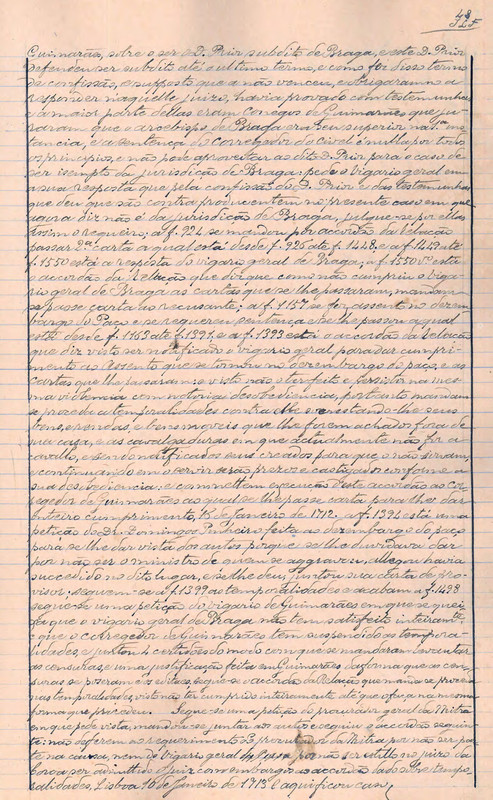 Guimarães, sobre o ser o D. Prior subdito de Braga, e este D. Prior
defendeu ser subdito até o ultimo termo, e como fez disso termo
de confissão, e supposto que a não venceu, e obrigaram-no a
responder naquelle juizo, havia provado com testemunhas
e a maior parte dellas eram Conegos de Guimarães que ju-
raram que o arcebispo de Braga era seu superior na 1ª ins-
tancia, e a sentença do corregedor do civel é nulla por todos
os principios, e não pode aproveitar ao dito D. Prior para o caso de
ser isempto da jurisdicção de Braga: pede o vigario geral em
a sua resposta que pela confissão do D. Prior e das testemunhas
que deu que são contra producentem no presente caso em que
agora diz não é da jurisdicção de Braga, julgue-se por elles
assim o requeiro; a f. 924 se mandou por accordão da Relação
passar 2ª carta a qual está desde f. 926 até f. 1448, e a f. 1449 até
f. 1550 está a resposta do vigario geral de Braga; a f. 1550 vº está
o accordão da Relação que diz que como não cumpriu o viga-
rio geral de Braga as cartas que se lhe passaram, mandam
se passe carta ao recusante; a f. 1157 se fez assento no desem-
bargo do Paço e se requereu sentença e se lhe passou a qual
está desde f. 1163 até f. 1391, e a f. 1393 está o accordão da Relação
que diz visto ser notificado o vigario geral para dar cumpri-
mento ao Assento que se tomou no desembargo do paço, e ás
cartas que lhe passaram: e visto não o ter feito e persistir na mes-
ma violencia com notoria desobediencia, portanto mandam
se proceda a temporalidades contra elle sequestrando-lhe seus
bens, e rendas, e bens moveis que lhe forem achados fora de
sua casa, e as cavalgaduras em que actualmente não for a
cavallo, e serão notificados seus creados para que o não sirvam,
e continuando em o servir serão prezos e castigados conforme a
sua desobediencia, e commettem execução deste accordão ao cor-
regedor de Guimarães ao qual se lhe passe carta para lhe dar
inteiro cumprimento, 15 de janeiro de 1712. a f. 1394 está uma
petição do Dr. Domingos Pinheiro feita ao desembargo do paço
para se lhe dar vista dos autos porque se lhe duvidava dar
por não ser o ministro de quem se aggravou, allegou havia
succedido no dito lugar, e se lhe deu, juntou sua carta de pro-
visor; seguem-se a f. 1399 as temporalidades e acabam a f. 1498
segue-se uma petição do vigario de Guimarães em que se quei-
xa que o vigario geral de Braga não tem satisfeito inteiramente
que o corregedor de Guimarães tem suspendido as tempora-
lidades, e juntou 4 certidões do modo com que se mandaram levantar
as censuras e uma justificação feita em Guimarães da forma que as cen-
suras se pozeram e os editaes; segue-se o accordão da Relação que manda se proceda
nas temporalidades, visto não ter cumprido inteiramente até que o faça na mesma
forma que procedeu. Segue-se uma petição do procurador geral da Mitra
em que pede vista, mandou-se juntar aos autos e seguiu o accordão seguin-
te: não deferem ao requerimento do procurador da Mitra por não ser par-
te na causa, nem o vigario geral por não ser ouvido no juizo da
Coroa, ser admittido a fazer com embargos ao accordão dado sobre tempo-
ralidades, Lisboa 10 de janeiro de 1713 e aqui ficou a causa